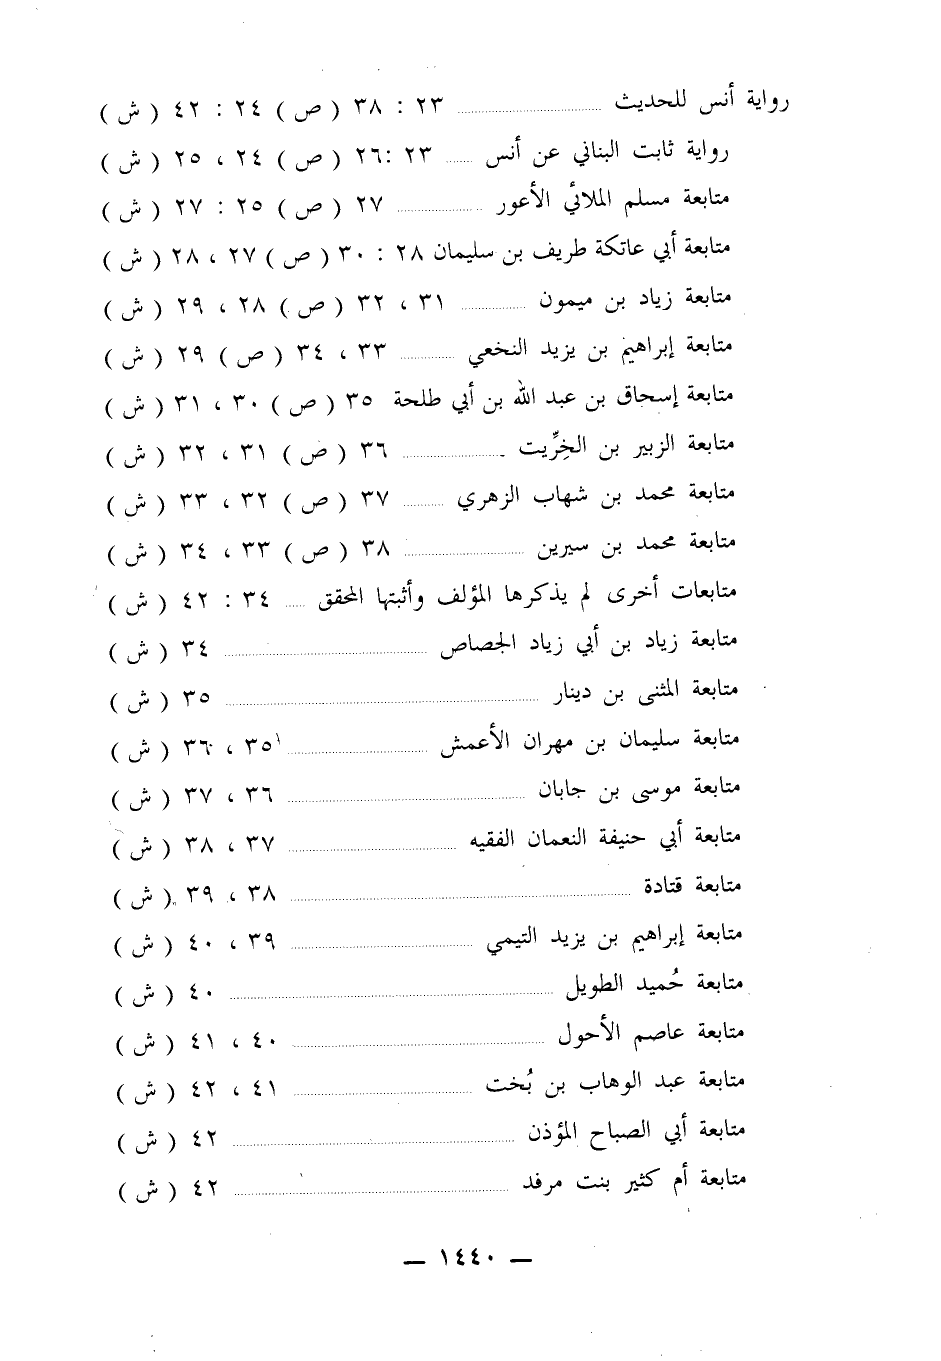 رواية أنس للحديث ........ ٢٣ : ٣٨ ( ص ) ٢٤ : ٤٢ ( ش )
رواية ثابت البناني عن أنس ........ ٢٣ :٢٦ ( ص ) ٢٤ ، ٢٥ ( ش )
متابعة مسلم الملائي الأعور ........ ٢٧ ( ص ) ٢٥ : ٢٧ ( ش )
متابعة أبي عاتكة طريف بن سليمان ٢٨ : ٣٠ ( ص ) ٢٧ ، ٢٨ ( ش )
متابعة زياد بن ميمون ........ ٣١ ، ٣٢ ( ص ) ٢٨ ، ٢٩ ( ش )
متابعة إبراهيم بن يزيد النخعي ........ ٣٣ ، ٣٤ ( ص ) ٢٩ ( ش )
متابعة إسحاق بن عبد الله بن أبي طلحة ٣٥ ( ص ) ٣٠ ، ٣١ ( ش )
متابعة الزبير بن الخِرِّيت ........ ٣٦ ( ص ) ٣١ ، ٣٢ ( ش )
متابعة محمد بن شهاب الزهري ........ ٣٧ ( ص ) ٣٢ ، ٣٣ ( ش )
متابعة محمد بن سيرين ........ ٣٨ ( ص ) ٣٣ ، ٣٤ ( ش )
متابعات أخرى لم يذكرها المؤلف وأثبتها المحقق ........ ٣٤ : ٤٢ ( ش )
متابعة زياد بن أبي زياد الجصاص ........ ٣٤ ( ش )
متابعة المثنى بن دينار ........ ٣٥ ( ش )
متابعة سليمان بن مهران الأعمش ........ ٣٥ ، ٣٦ ( ش )
متابعة موسى بن جابان ........ ٣٦ ، ٣٧ ( ش )
متابعة أبي حنيفة النعمان الفقيه ........ ٣٧ ، ٣٨ ( ش )
متابعة قتادة ........ ٣٨ ، ٣٩ ( ش )
متابعة إبراهيم بن يزيد التيمي ........ ٣٩ ، ٤٠ ( ش )
متابعة حُميد الطويل ........ ٤٠ ( ش )
متابعة عاصم الأحول ........ ٤٠ ، ٤١ ( ش )
متابعة عبد الوهاب بن بُخت ........ ٤١ ، ٤٢ ( ش )
متابعة أبي الصباح المؤذن ........ ٤٢ ( ش )
متابعة أم كثير بنت مرفد ........ ٤٢ ( ش )
— ١٤٤٠ —